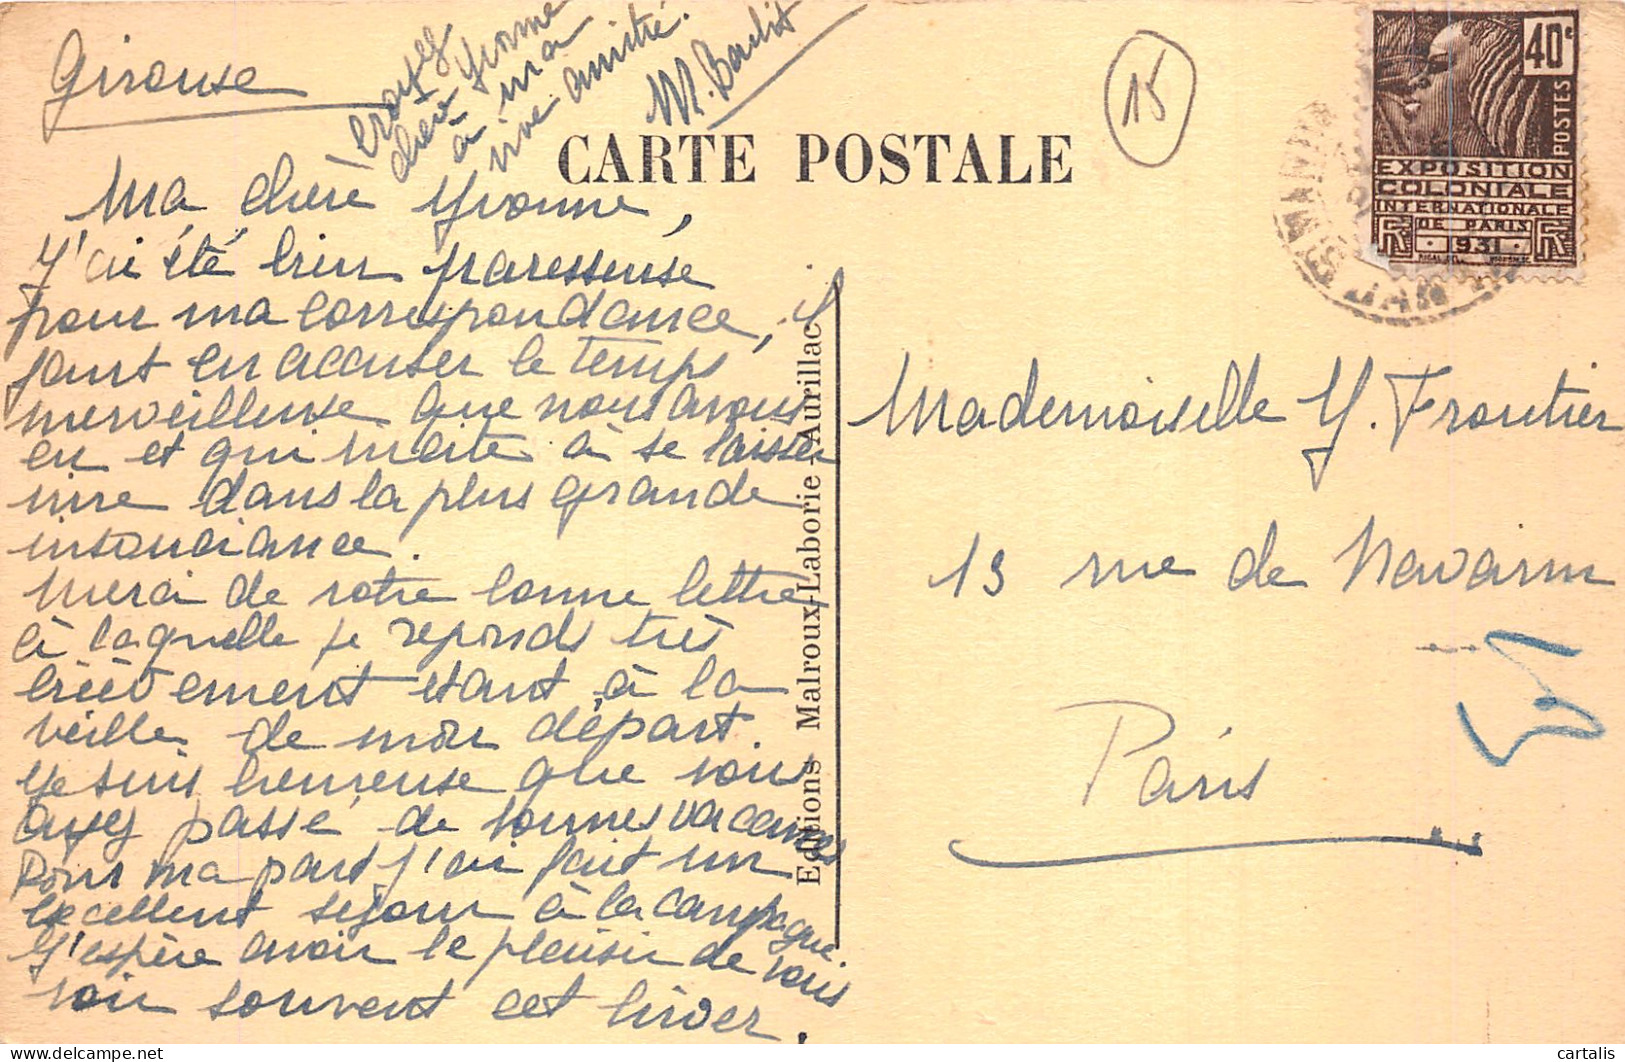 Girouse
CARTE POSTALE
15
40c
POSTES
EXPOSITION
COLONIALE
INTERNATIONALE
DE PARIS
1931
RF RF
Ma chère Yvonne,
J'ai été bien paresseuse
pour ma correspondance, il
faut en accuser le temps
merveilleuse que nous avons
eu et qui incite à se laisser
vivre dans la plus grande
insouciance.
Merci de votre bonne lettre
à laquelle je reponds très
brièvement étant à la
veille de mon départ.
Je suis heureuse que vous
ayez passé de bonnes vacances
Pour ma part j'ai fait un
excellent sejour à la campagne
J'espère avoir le plaisir de vous
voir souvent cet hiver.
Croyez
chère Yvonne
à ma
vive amitié.
Editions Malroux-Laborie-Aurillac
Mademoiselle Y. Frontier
13 rue de Navarin
Paris
cartalis
delcampe.net